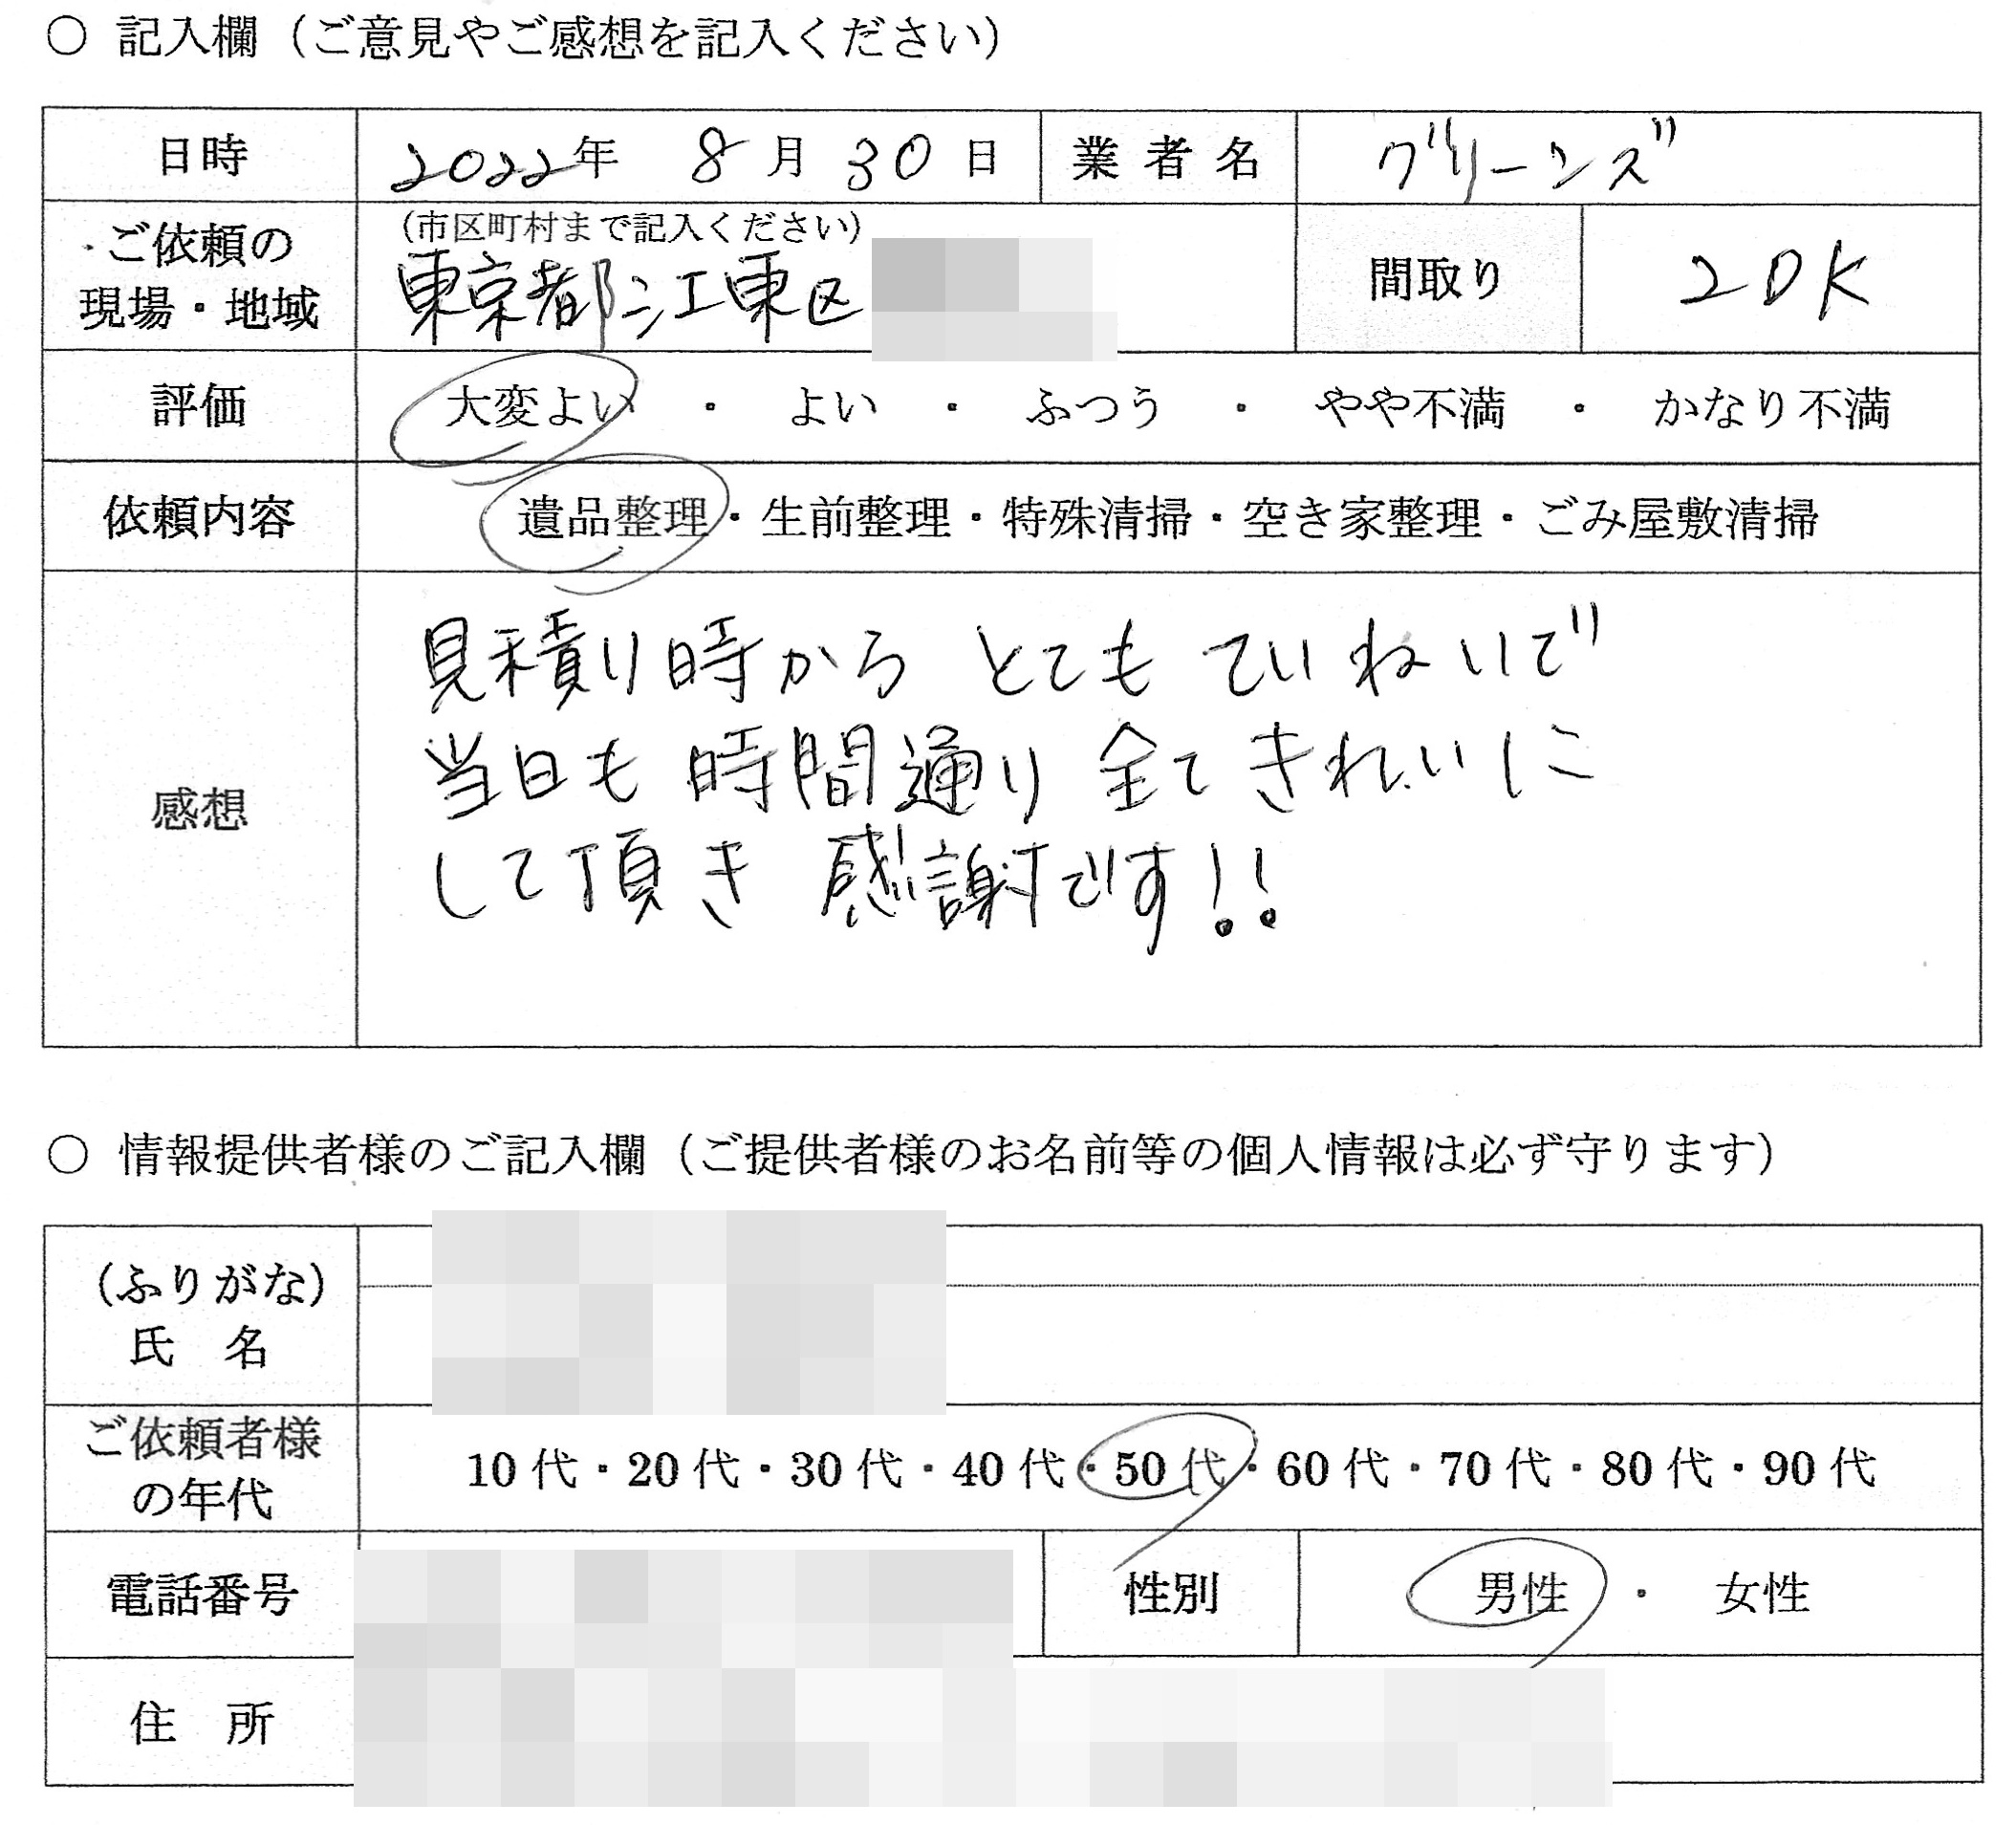 ○ 記入欄（ご意見やご感想を記入ください）
日時 2022年 8月30日 業者名 グリーンズ
ご依頼の
現場・地域
（市区町村まで記入ください）
東京都江東区
間取り 2DK
評価 大変よい ・ よい ・ ふつう ・ やや不満 ・ かなり不満
依頼内容 遺品整理・生前整理・特殊清掃・空き家整理・ごみ屋敷清掃
感想
見積り時から とても ていねいで
当日も 時間通り 全て きれいに
して頂き 感謝です!!
○ 情報提供者様のご記入欄（ご提供者様のお名前等の個人情報は必ず守ります）
（ふりがな）
氏 名
ご依頼者様
の年代
10代・20代・30代・40代・50代・60代・70代・80代・90代
電話番号 性別 男性 ・ 女性
住 所